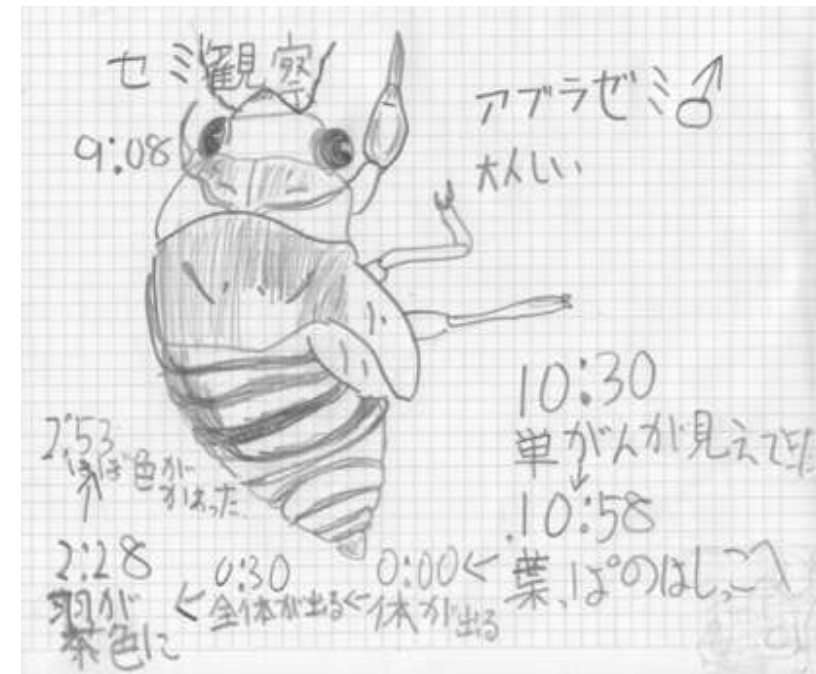 セミ観察
アブラゼミ♂
9:08
大人しい
10:30
単がんが見えて
↓
10:58
葉っぱのはしっこへ
← 0:00
体が出る
← 0:30
全体が出る
← 2:28
羽が
茶色に
↑
2:53
ほぼ色が
かわった